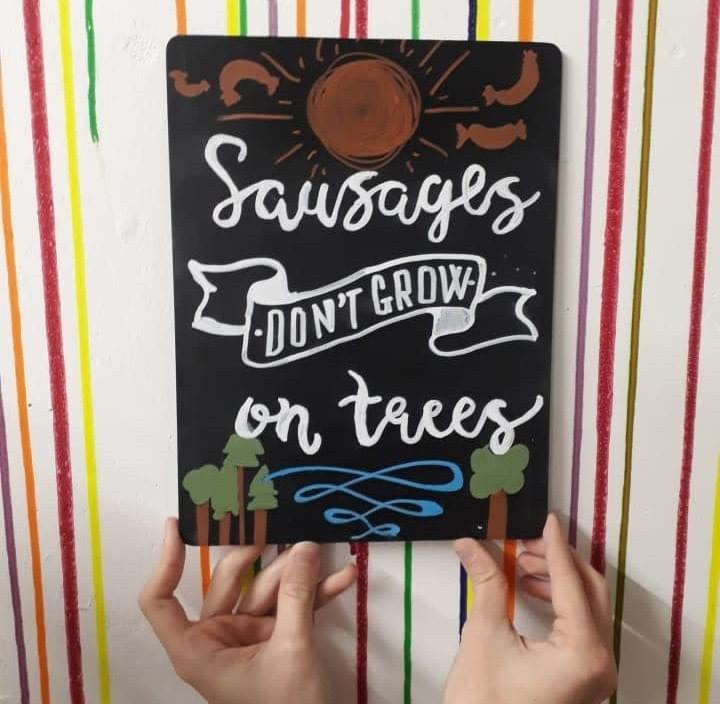 Sausages
·DON'T GROW·
on trees